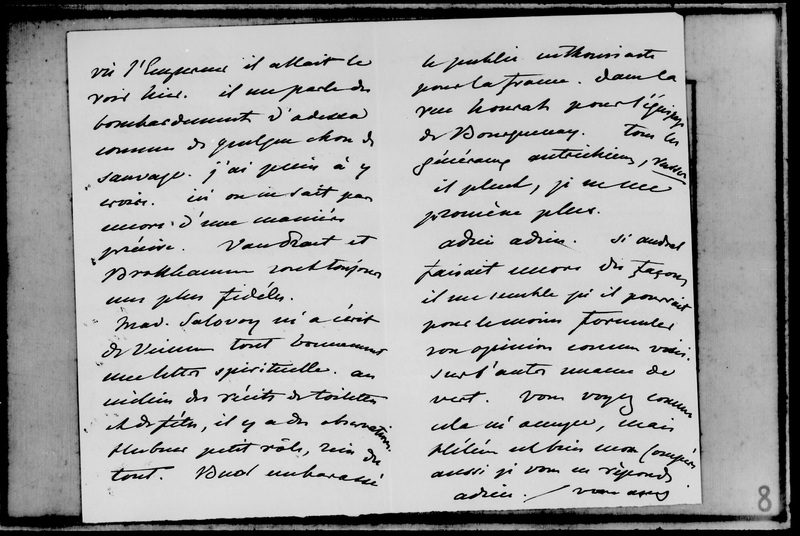 vu l'Empereur il allait le
voir hier. il me parle des
bombardements d'odessa
comme de quelque chose de
sauvage. j'ai peine à y
croire. ici on ne sait pas
encore d'une manière
précise. et
sont toujours
mes plus fidèles.
Mad. m'a écrit
de Vienne tout bonnement
une lettre spirituelle. au
milieu des récits de toilettes
et de fêtes, il y a des observations.
Hubner petit rôle, rien du
tout. Buol embarassé
le public enthousiaste
pour la france. dans la
rue hourrah pour l'équipage
de Bourqueney. tous les
généraux autrichiens, russes
il pleut, je ne me
promène plus.
adieu adieu. si
faisait encore des façons
il me semble qu'il pourrait
pour le moins formuler
son opinion comme
sur l'autre de
vert. vous voyez comme
cela m'ennuye, mais
Hélène est bien mon
aussi je vous en réponds
adieu.
8